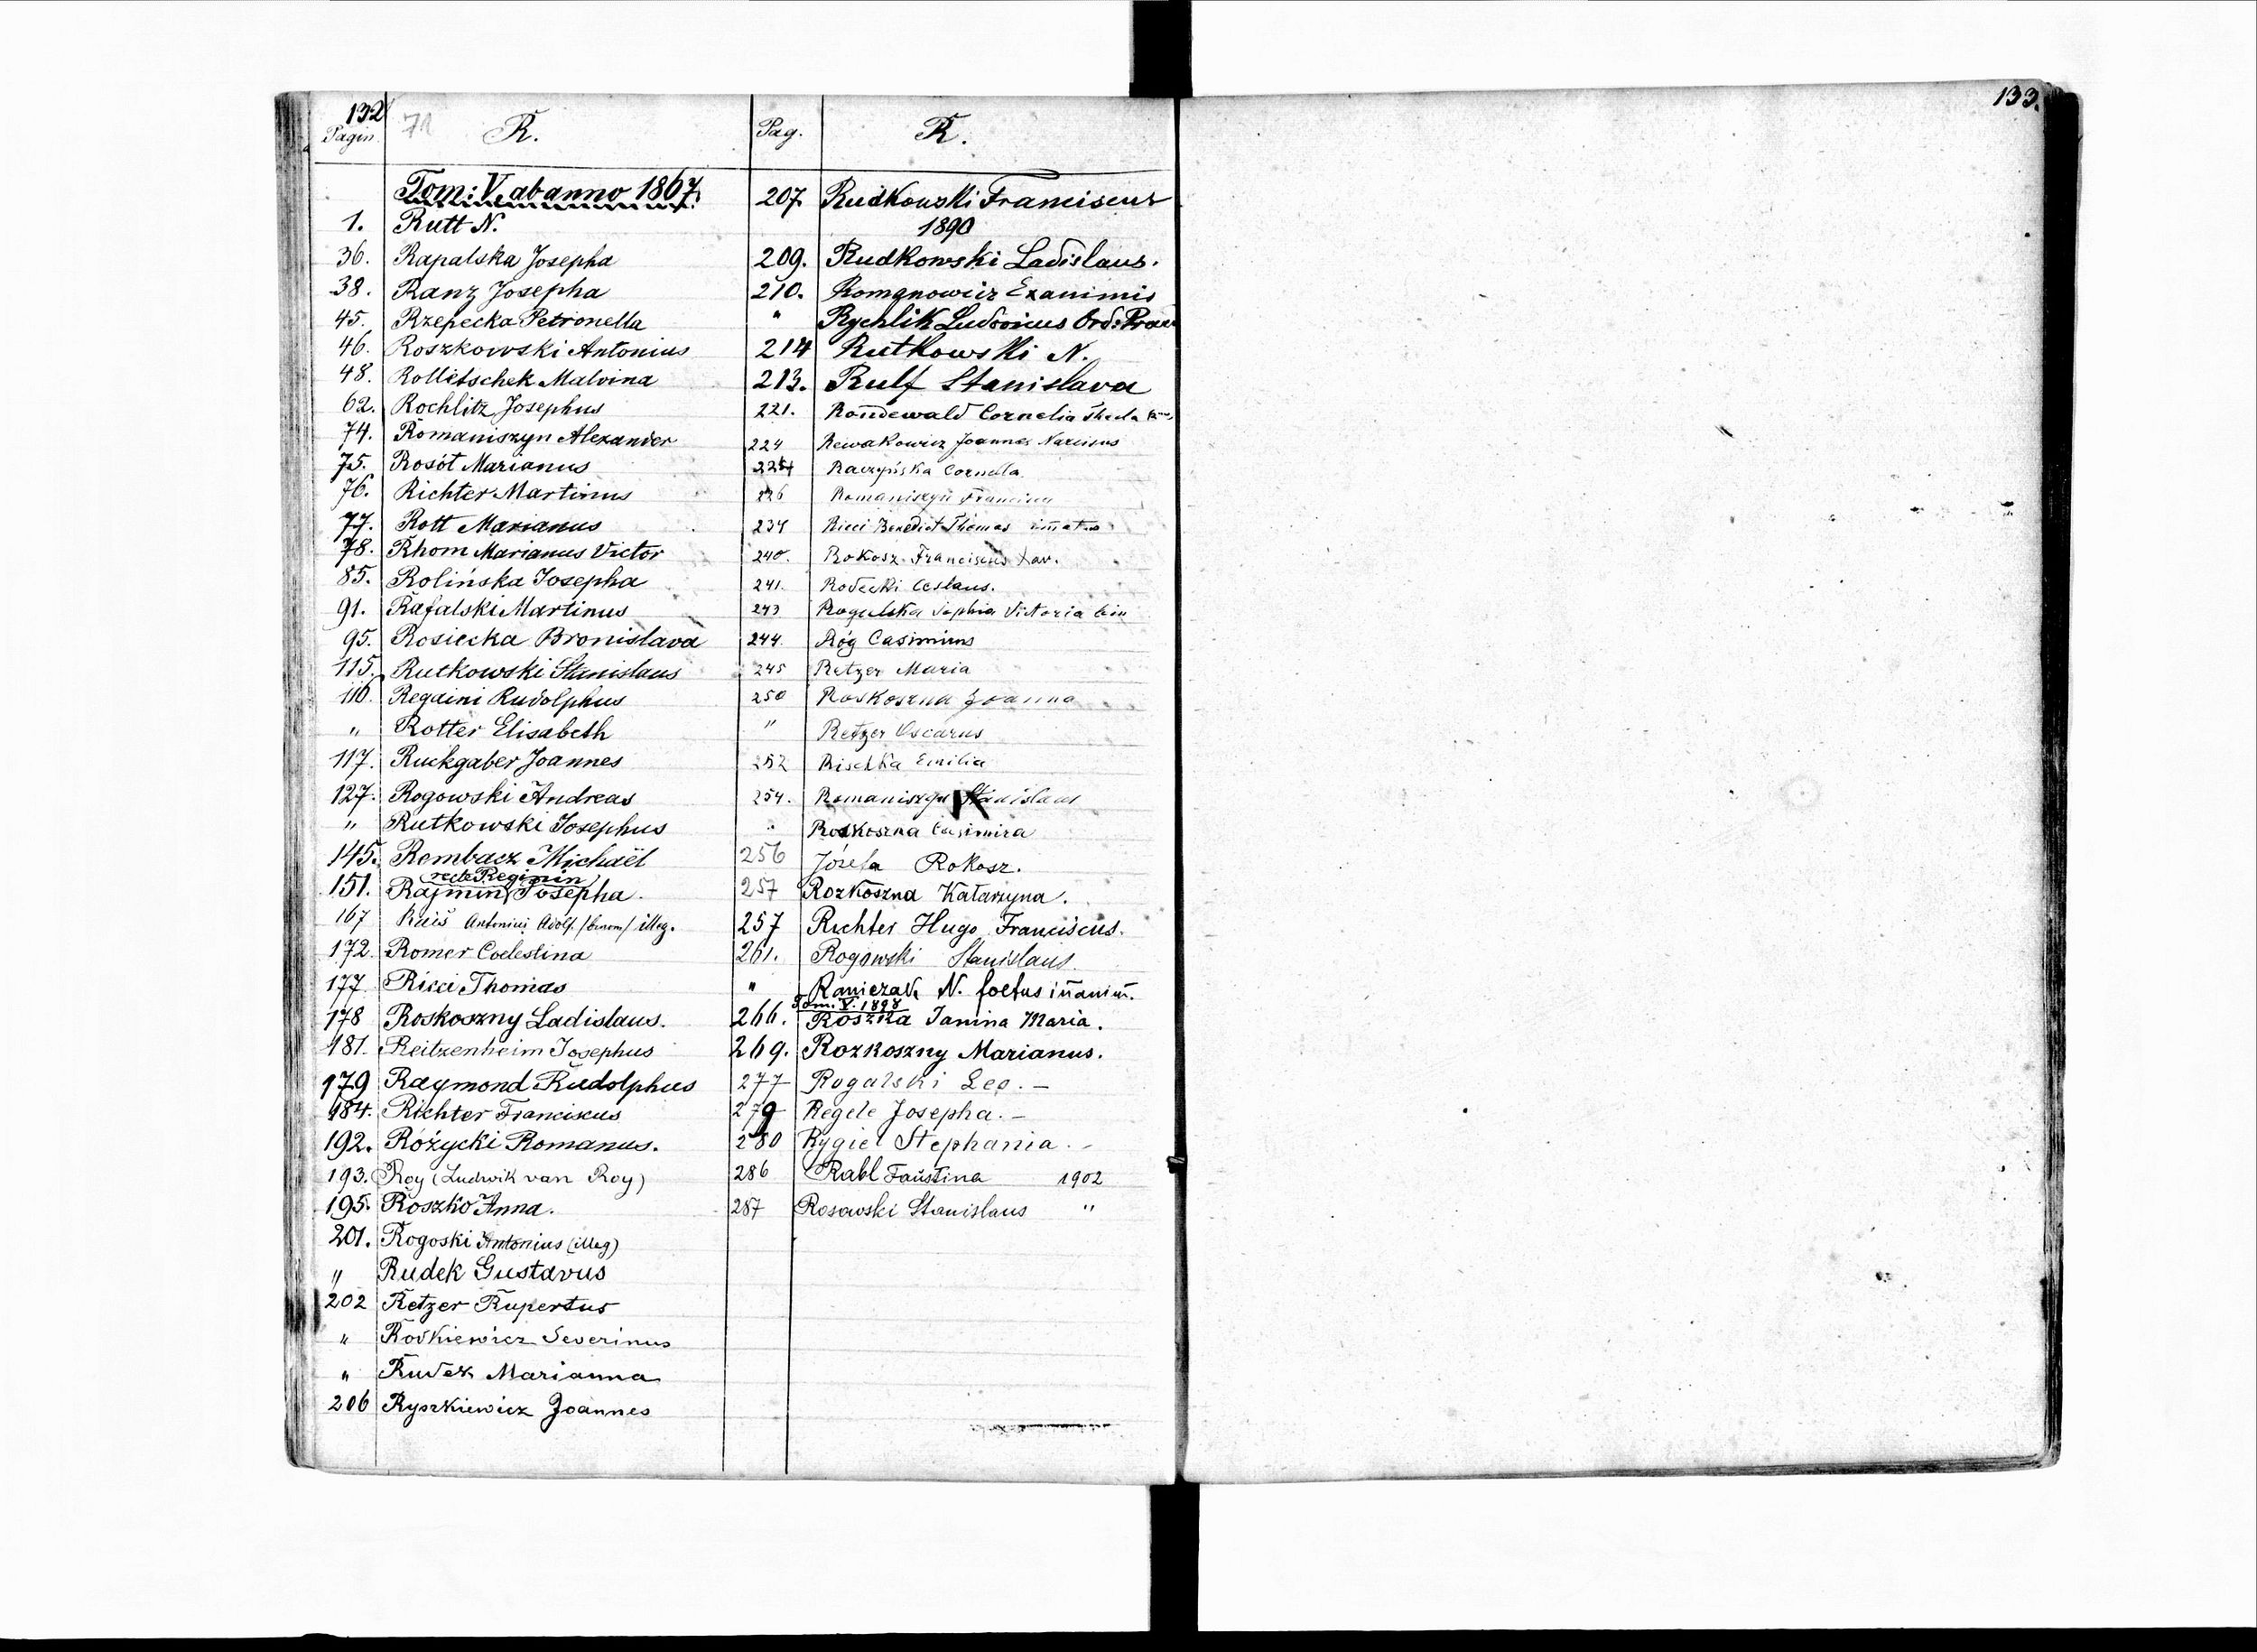 132
Pagin. R.
Tom: V. ab anno 1867.
1. Rutt N.
36. Rapalska Josepha
38. Ranz Josepha
45. Rzepecka Petronella
46. Roszkowski Antonius
48. Rollitschek Malvina
62. Rochlitz Josephus
74. Romaniszyn Alexander
75. Rosót Marianus
76. Richter Martinus
77. Rott Marianus
78. Rhom Marianus Victor
85. Rolińska Josepha
91. Rafalski Martinus
95. Rosiecka Bronislava
115. Rutkowski Stanislaus
116. Regaini Rudolphus
" Rotter Elisabeth
117. Ruckgaber Joannes
127. Rogowski Andreas
" Rutkowski Josephus
145. Rembacz Michaël
(recte Reginin)
151. Rajmin Josepha.
167 Antonius Adolf. illeg.
172. Romer Coelestina
177 Ricci Thomas
178 Roskoszny Ladislaus.
181. Reitzenheim Josephus
179 Raymond Rudolphus
184. Richter Franciscus
192. Różycki Romanus.
193. Roy (Ludwik van Roy)
195. Roszko Anna.
201. Rogoski Antonius (illeg)
" Rudek Gustavus
202 Retzer Rupertus
" Rodkiewicz Severinus
" Rudek Marianna
206 Ryszkiewicz Joannes
Pag. R.
207 Rudkowski Franciscus
1890
209. Rudkowski Ladislaus.
210. Romanowicz Exanimis
" Rychlik Ludovicus Ord:
214 Rutkowski N.
213. Rulf Stanislava
221. Rondewald Cornelia Thecla
224 Rewakowicz Joannes Narcisus
Raczyńska Cornelia
226 Romaniszyn
234 Ricci Benedict Thomas
240. Rokosz Franciscus Xav.
241. Rodecki Ceslaus.
243 Rogulska Sophia Victoria bin
244. Róg Casimirus
245 Retzer Maria
250 Roskoszna Joanna
" Retzer Oscarus
252 Rischka Emilia
254. Romaniszyn Stanislaus
" Roskoszna Casimira
256 Józefa Rokosz.
257 Rozkoszna Katarzyna.
257 Richter Hugo Franciscus.
261. Rogowski Stanislaus.
" N. foetus inanim.
Tom. V. 1898
266. Roszka Janina Maria.
269. Rozkoszny Marianus.
277 Rogalski Leo. —
279 Regele Josepha. —
280 Rygiel Stephania. -
286 Rabl Faustina 1902
287 Rosowski Stanislaus "
133.